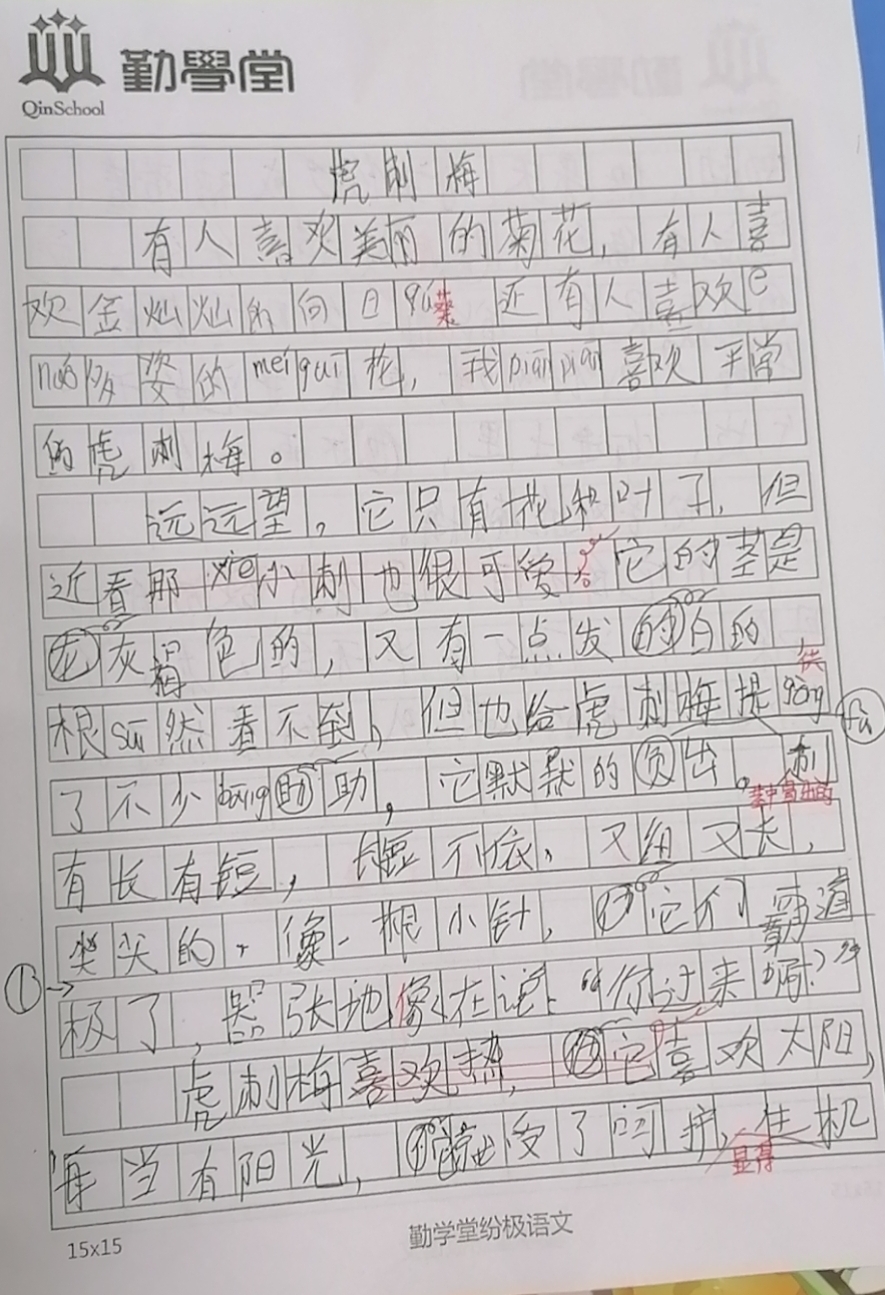 勤學堂
QinSchool
虎刺梅
有人喜欢美丽的菊花，有人喜
欢金灿灿的向日葵 还有人喜欢e
nuó多姿的meiguī花，我piānpiān喜欢平常
的虎刺梅。
远远望，它只有花和叶子，但
近看那xiē小刺也很可爱。它的茎是
灰褐色的，又有一点发白的，
根suī然看不到，但也给虎刺梅提gōng供
了不少bāng助，它默默的负出。刺
fù
茎中冒出的
有长有短，长短不依，又细又长，
尖尖的，像一根小针，它们霸道
①
极了，嚣张地像在说：“你过来啊？”
虎刺梅喜欢热，它喜欢太阳，
每当有阳光，它就受了呵护，生机
显得
15x15
勤学堂纷极语文